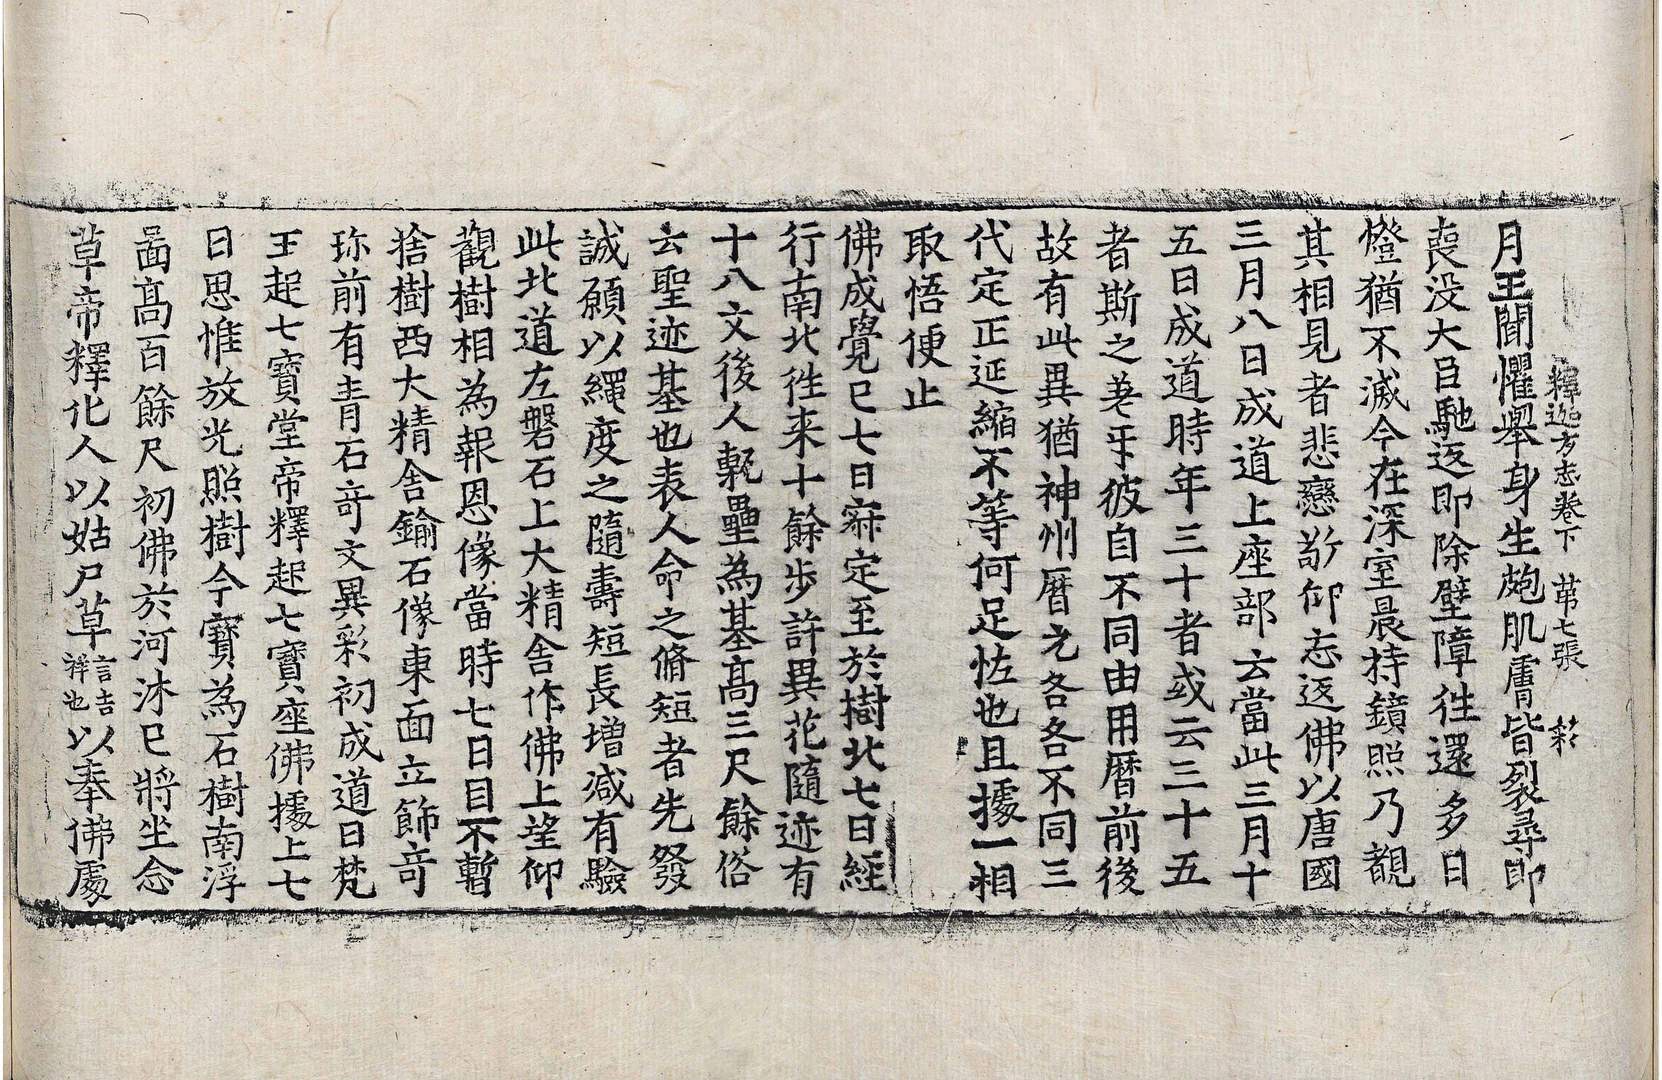 釋迦方志卷下 苐七張 
月王聞懼舉身生皰肌膚皆裂尋即
喪没大臣馳返即除壁障徃還多日
燈猶不滅今在深室晨持鏡照乃覩
其相見者悲戀敬仰忘返佛以唐國
三月八日成道上座部云當此三月十
五日成道時年三十者或云三十五
者斯之差㸦彼自不同由用暦前後
故有此異猶神州暦元各各不同三
代定正延縮不等何足恠也且據一相
取悟便止
佛成覺已七日㝎定至於樹北七日經
行南北徃来十餘步許異花隨迹有
十八文後人甎壘為基高三尺餘俗
云聖迹基也表人命之脩短者先發
誠願以繩度之隨壽短長增减有驗
此北道左磐石上大精舍作佛上望仰
觀樹相為報恩像當時七日目不暫
捨樹西大精舍鍮石像東面立飾竒
珎前有青石竒文異彩初成道日梵
王起七寶堂帝釋起七寶座佛據上七
日思惟放光照樹今寶為石樹南浮
啚高百餘尺初佛於河沐已將坐念
草帝釋化人以姑尸草言吉祥也以奉佛處